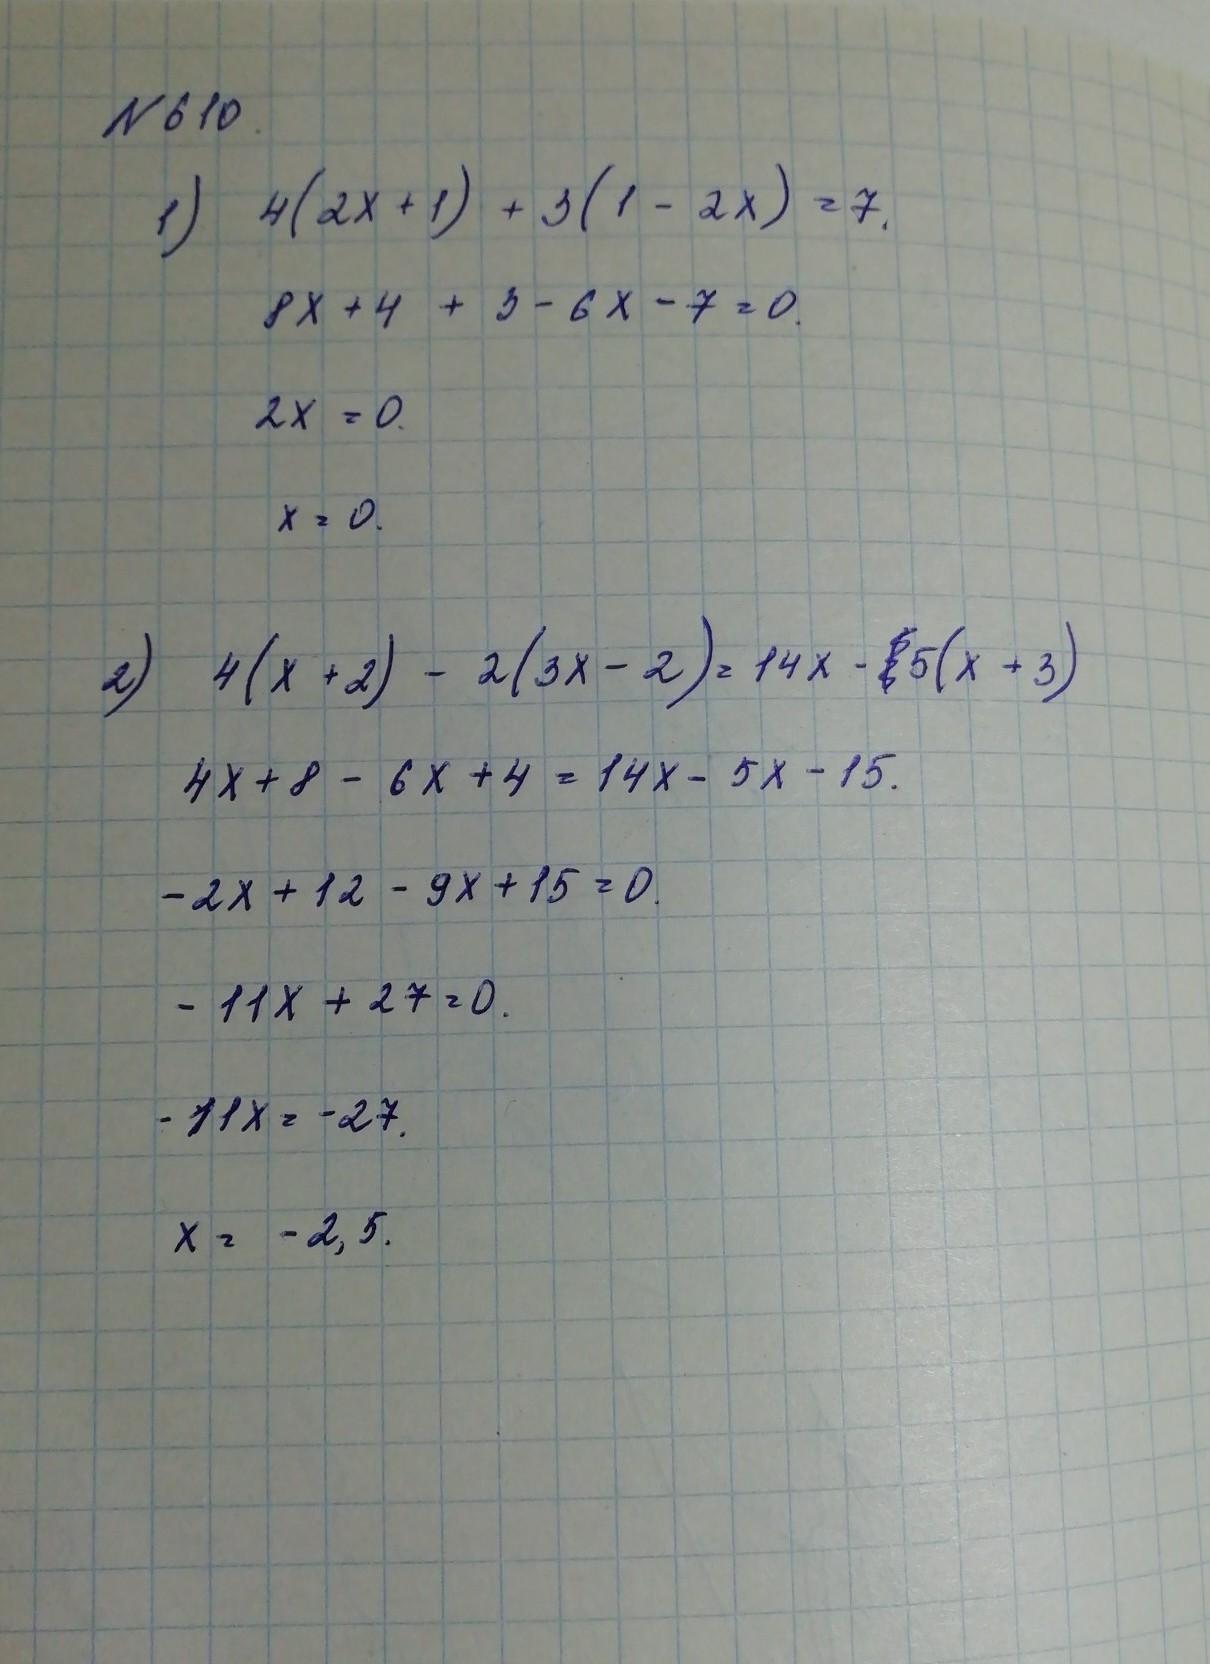 N 610.
1) 4(2x+1) + 3(1 - 2x) = 7.
8x + 4 + 3 - 6x - 7 = 0.
2x = 0.
x = 0.
2) 4(x+2) - 2(3x - 2) = 14x - 5(x + 3)
4x + 8 - 6x + 4 = 14x - 5x - 15.
-2x + 12 - 9x + 15 = 0.
- 11x + 27 = 0.
- 11x = -27.
x = -2,5.